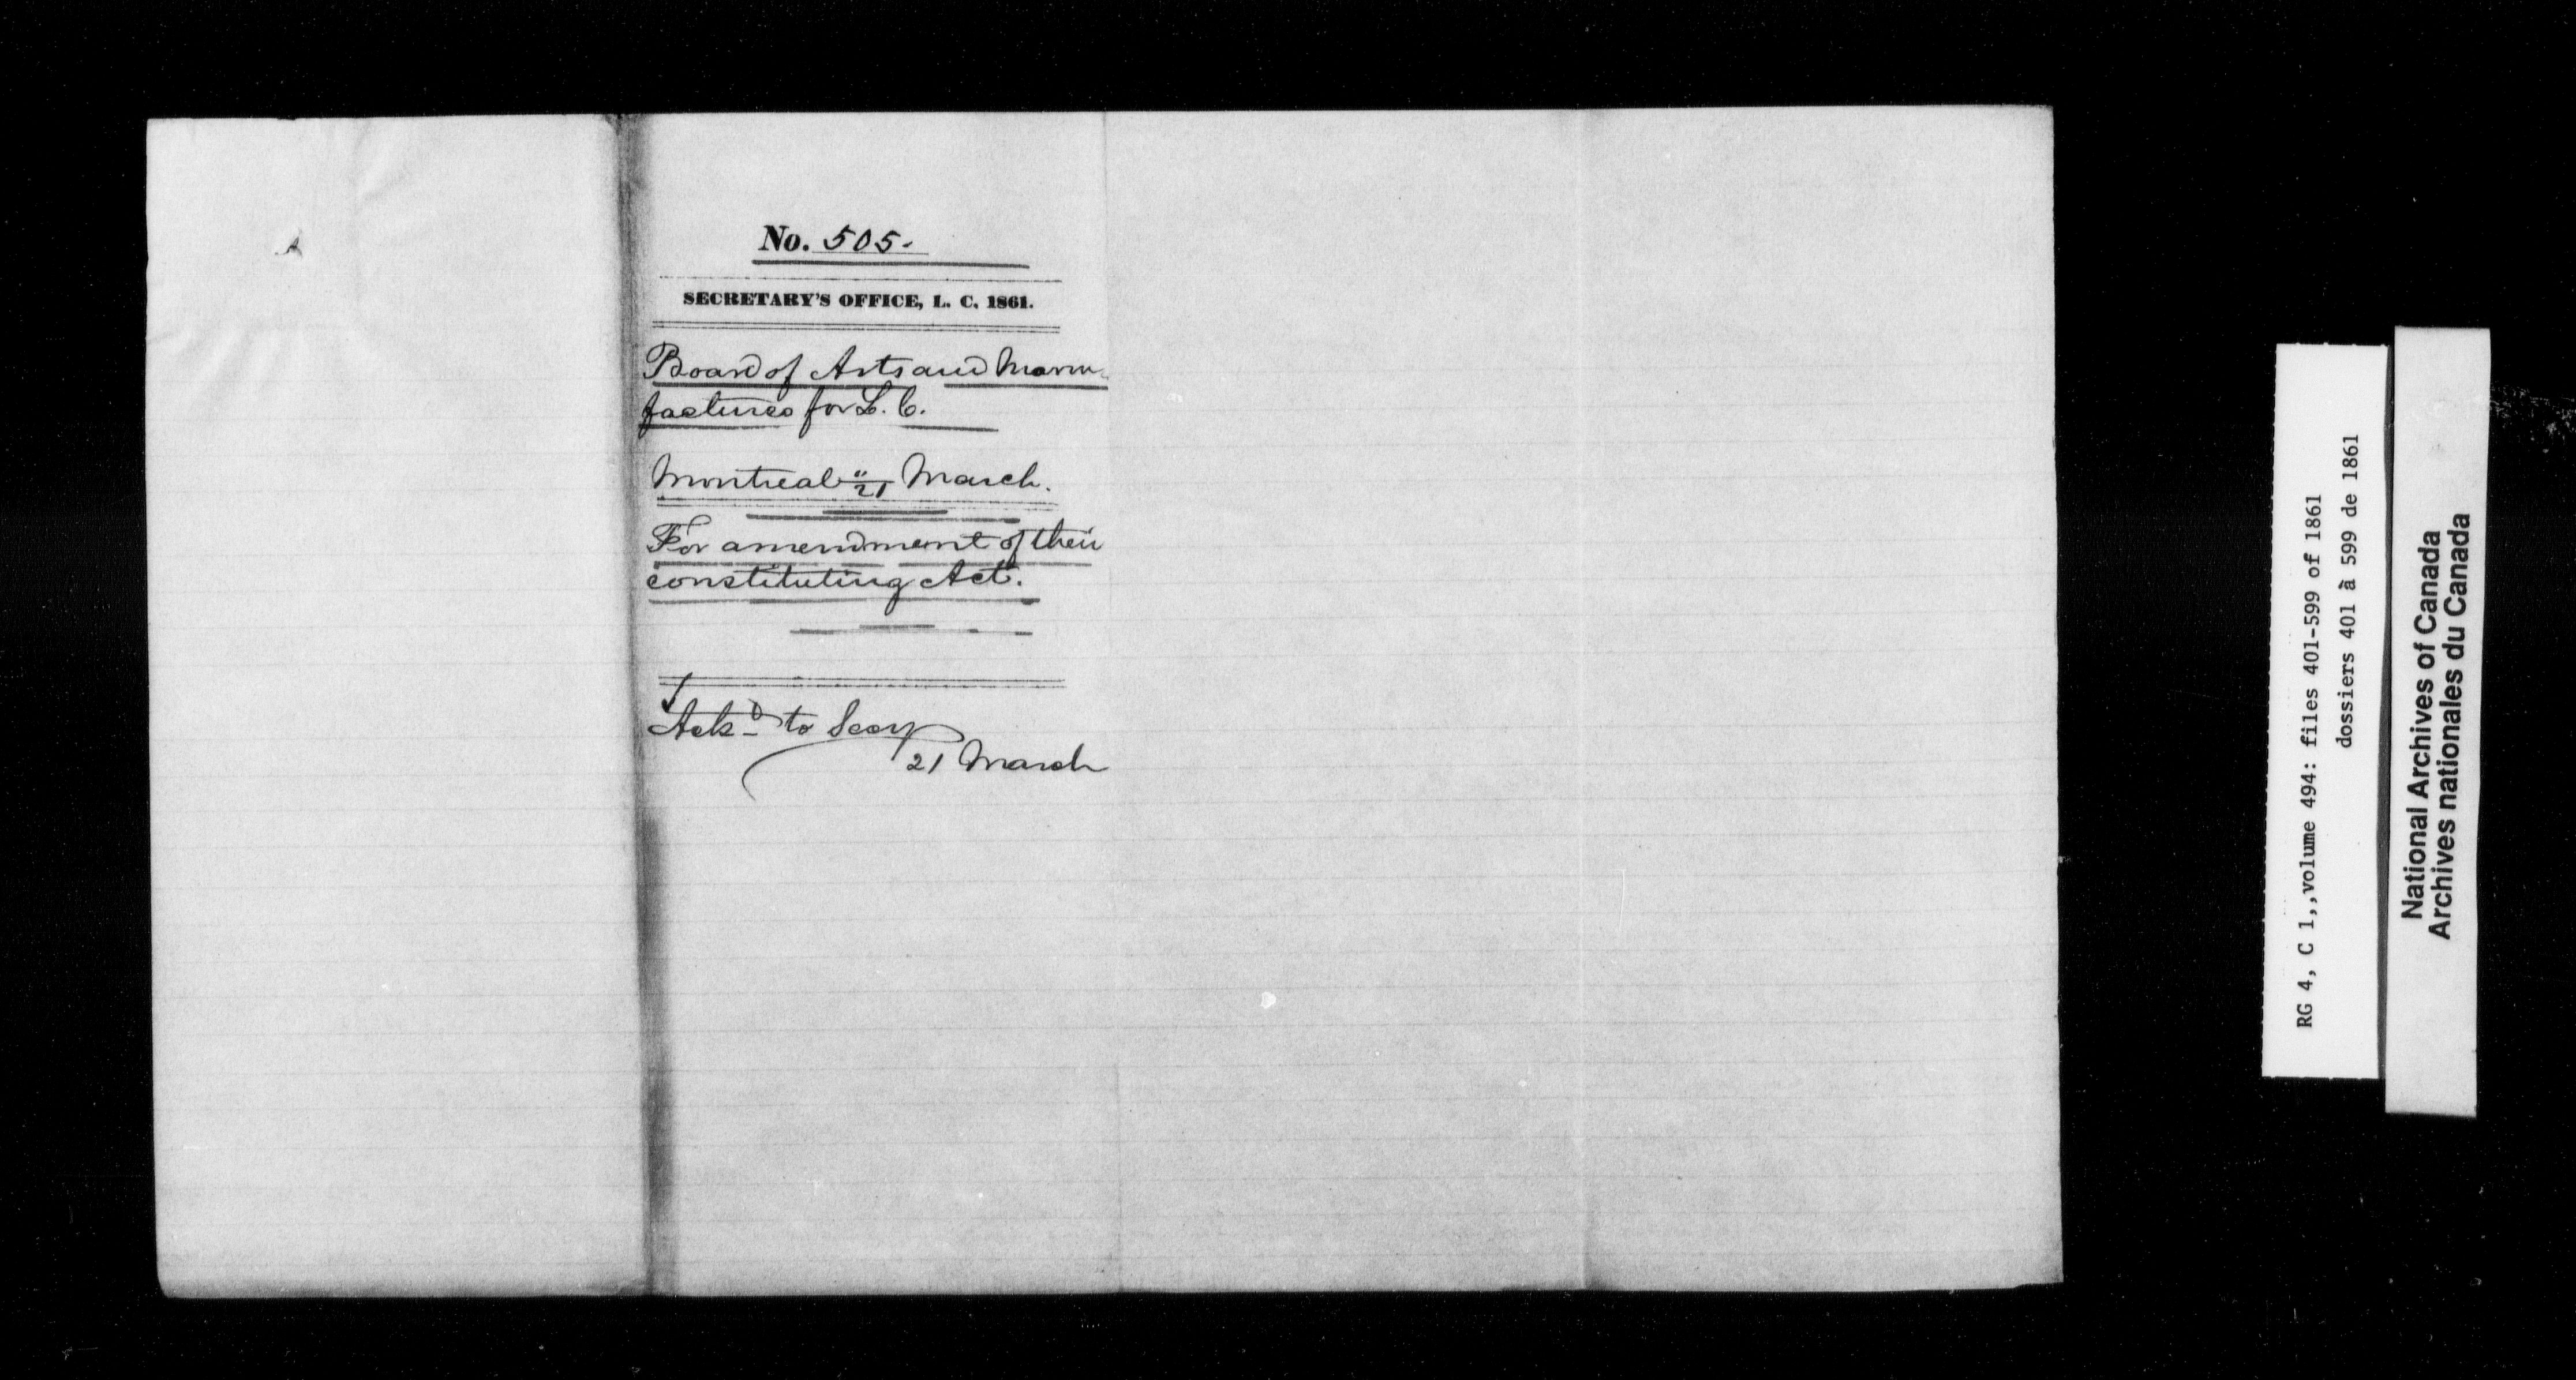 No. 505.
SECRETARY'S OFFICE, L. C. 1861.
Board of Arts and Manu-
factures for L. C.
Montreal 21 March.
For amendment of their
constituting Act.
Ackd to Secy
21 March
RG 4, C 1,,volume 494: files 401-599 of 1861
dossiers 401 à 599 de 1861
National Archives of Canada
Archives nationales du Canada